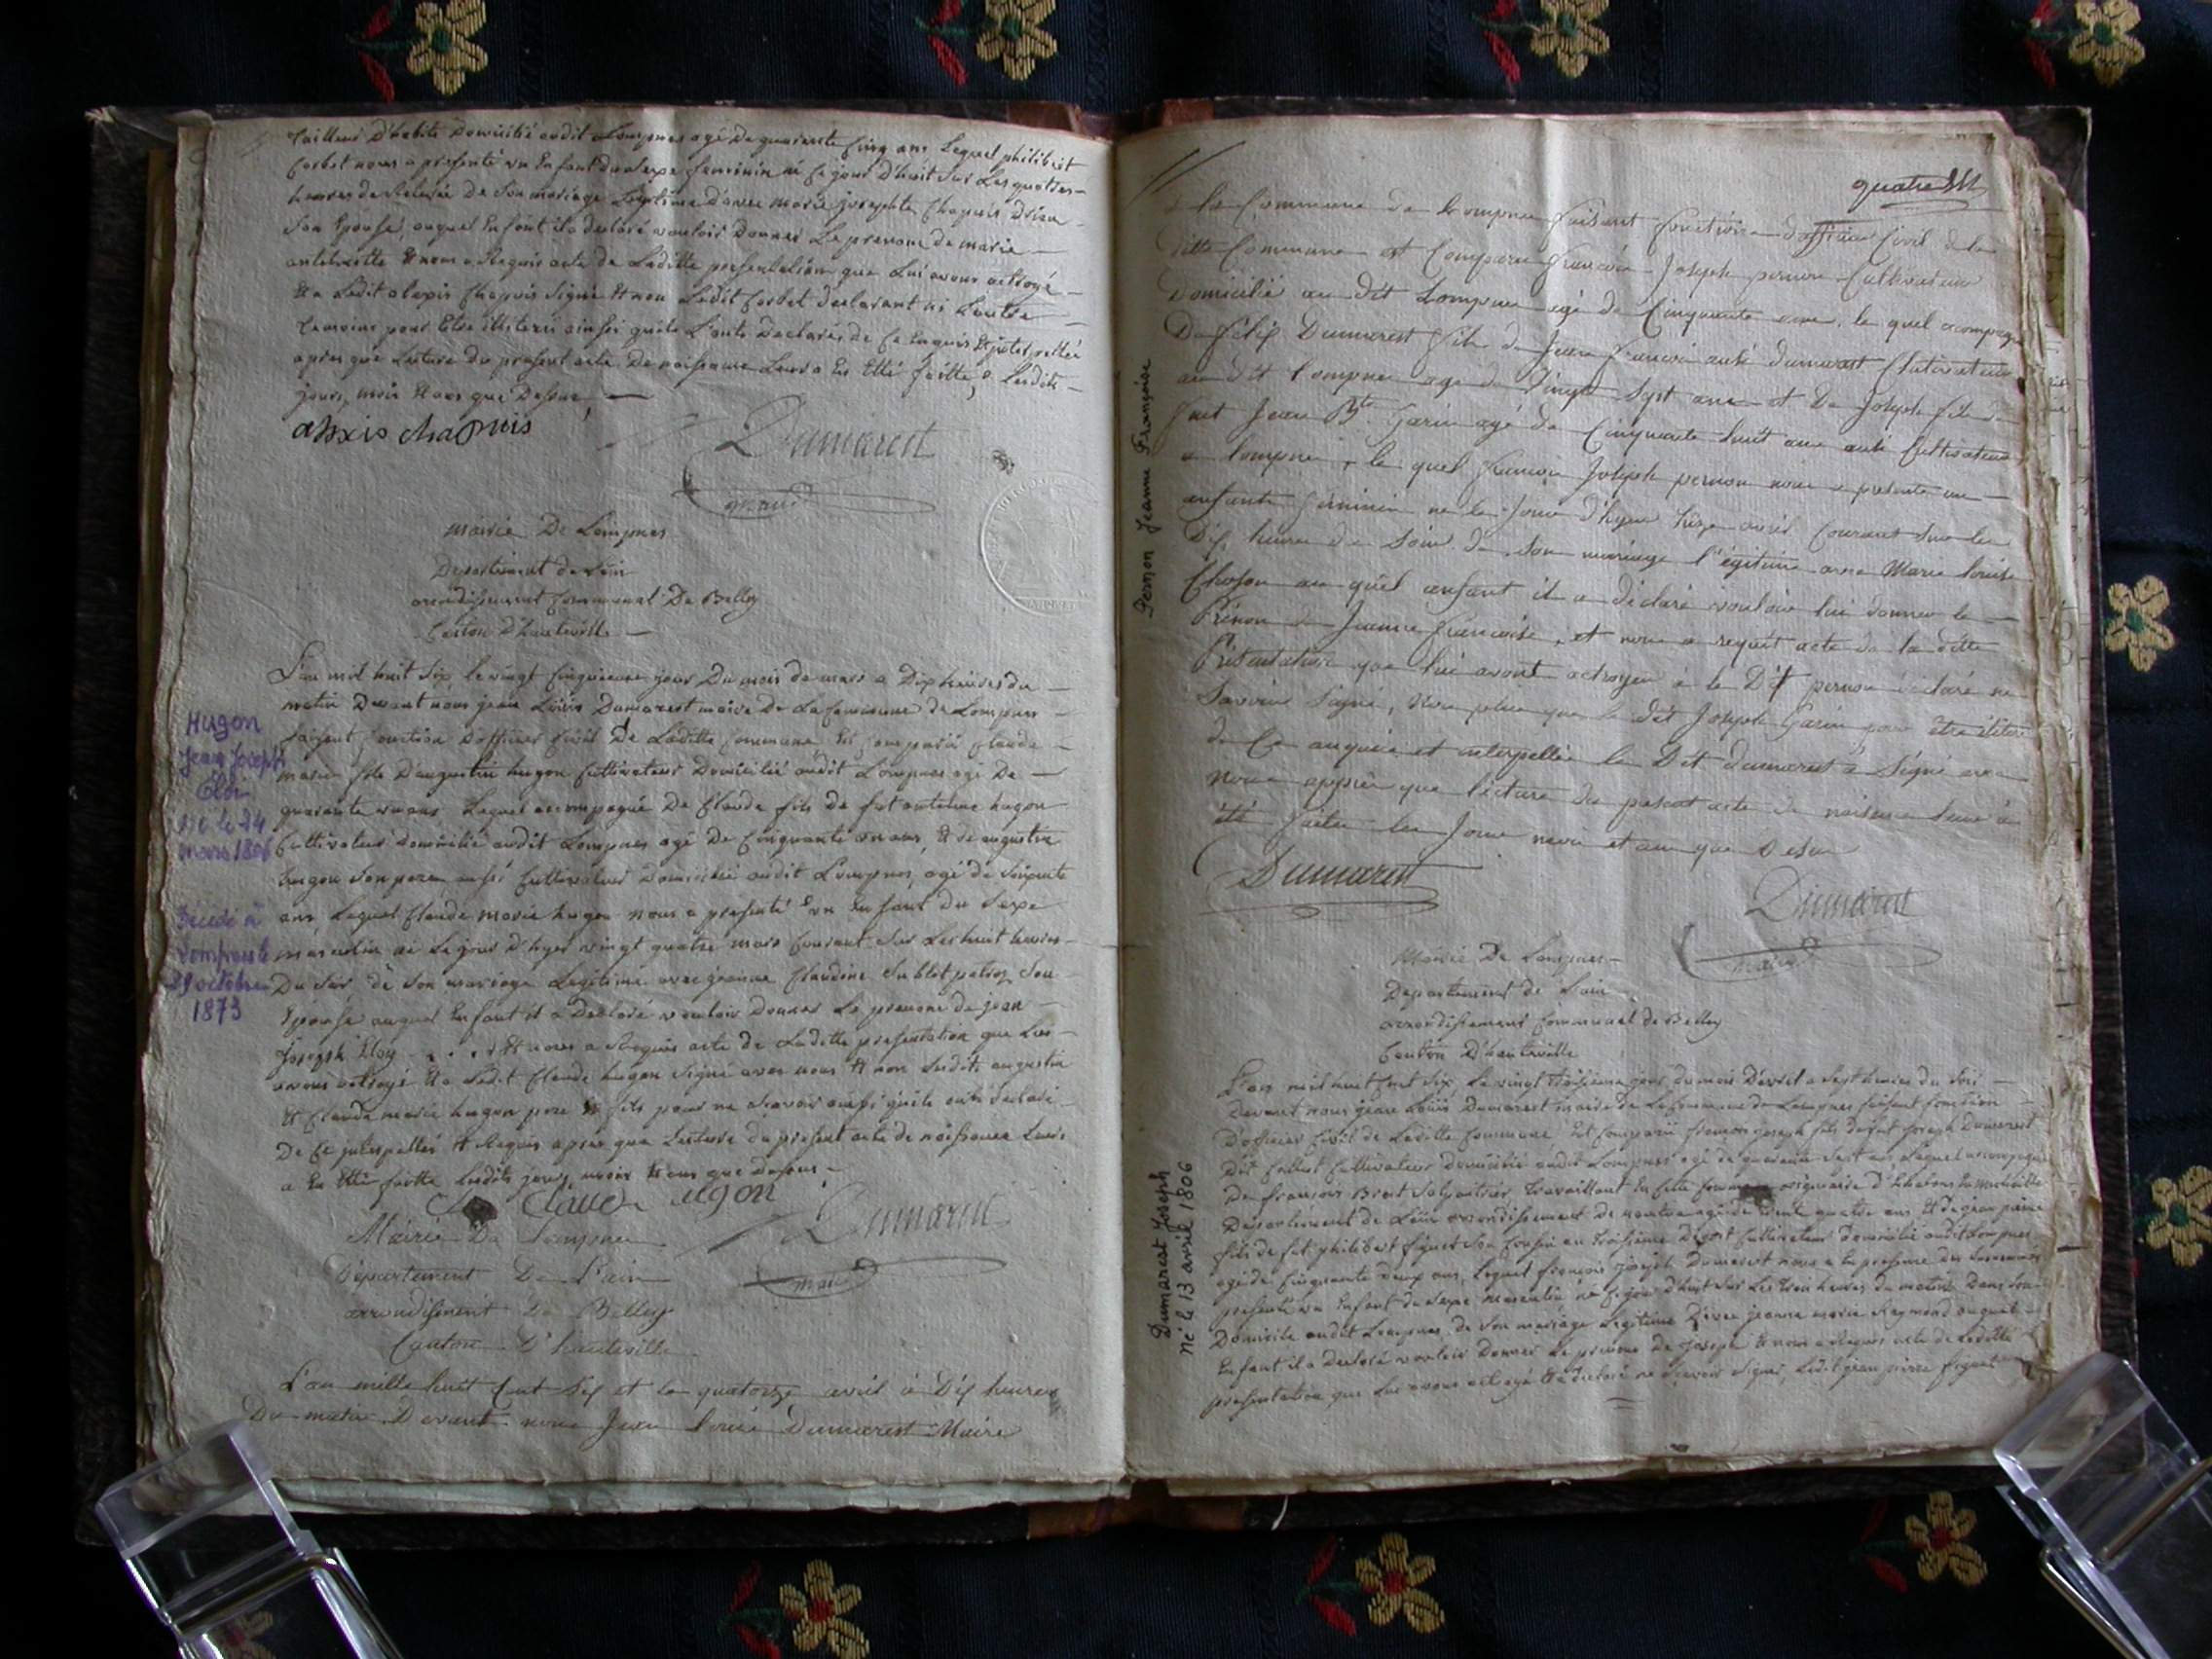 tailleur D'habits Domicilié audit Lompnes agé De quarante Cinq ans Lequel philibert
Corbet nous a presenté un Enfant du Sexe feminin né Ce jour D'huit Sur Les quatres
heures de Relevée De Son mariage Legitime d'avec marie josephte Chapuis
Son Epouse, auquel Enfant il a declaré vouloir Donner Le prenom de marie
anthelmette & nous a Requis acte de Laditte presentation que Lui avons octroyé
Et a Ledit alexis Chapuis Signé & non Ledit Corbet declarant ni Lautre
temoins pour Etre illiterés ainsi quils L'onts Declarés de Ce Enquis & interpellés
apres que Lecture du present acte De naissance Leurs a Eu Etté faitte, Lesdits
jours, mois & ans que Dessus
alexis chapuis
Dumarest
maire
mairie De Lompnes
Departement de Lain
arrondissement Communal De Belley
Canton d'hauteville
L'an mil huit Six, le vingt Cinquieme jour Du mois de mars a Dix heures du
matin Devant nous jean Loüis Dumarest maire De La Commune de Lompnes
faisant fonction Dofficier Civil De Laditte Commune Est Comparu Claude
marie fils D'augustin hugon Cultivateur Domicilié audit Lompnes agé De
quarante un ans Lequel accompagné De Claude fils de fut anteline hugon
Cultivateur Domicilié audit Lompnes agé De Cinquante un ans, & de augustin
hugon Son pere aussi Cultivateur Domicilié audit Lompnes, agé de Soixante
ans, Lequel Claude marie hugon nous a presenté un Enfant du Sexe
masculin né Le jour d'hyer vingt quatre mars Courant Sur Les huit heures
Du Soir de Son mariage Legitime avec jeanne Claudine Sublet patroz Son
Epouse auquel Enfant il a Declaré vouloir Donner Le prenom de jean
Joseph Eloy & nous a Requis acte de Laditte presentation que Lui
avons octroyé & a Ledit Claude hugon Signé avec nous & non Lesdits augustin
& Claude marie hugon pere & fils pour ne Scavoir ainsi quils onts declaré
De Ce interpellés & Requis apres que Lecture du present acte de naissance Leurs
a Eu Etté faitte Lesdits jours, mois & ans que dessus
Claude ugon
Dumarest
maire
Hugon
Jean Joseph
Éloi
né le 24
mars 1806
Décédé à
Lompnes le
29 octobre
1873
Mairie De Lompnes
Département De L'ain
arrondisement De Belley
Canton D'hauteville
L'an mille huit Cent Six et le quatorze avril à Dix heures
Du matin Devant nous Jean Louis Dumarest Maire
quatre
de la Commune de Lompnes faisant fonctions d'officier Civil de la
ditte Commune est Comparu francois Joseph pernon Cultivateur
domicilié au dit Lompnes agé de Cinquante ans, le quel acompagné
De Dumarest fils de Jean francois aussi dumarest Cultivateur
au dit Lompnes agé de Vingt Sept ans et De Joseph fils de
fut Jean Bte Garin agé de Cinquante huit ans aussi Cultivateur
a lompnes, le quel francois Joseph pernon nous a présenté un
enfant féminin né le Jour d'hyer treize avril Courant Sur les
Dix heures du Soir de Son mariage légitime avec Marie louise
au quel enfant il a déclaré vouloir lui donner le
Prénom de Jeanne francoise, et nous a requit acte de la ditte
Présentation que lui avont octroyer é le Dit pernon déclaré ne
Savoir Signé, Non plus que le dit Joseph Garin pour être illitéré
de Ce enquis et interpellée le Dit dumarest a Signé avec
nous apprès que lécture du present acte de naissance leur a
été faitte les Jour mois et an que Dessus
Dumarest
Dumarest
maire
Pernon Jeanne Françoise
Mairie De Lompnes
Departement de Lain
arrondissement Communal de Belley
Canton D'hauteville
L'an mil huit Cent Six Le vingt troisieme jour du mois D'avril a Sept heures du Soir
Devant nous jean Loüis Dumarest maire de La Commune de Lompnes faisant fonction
D'officier Civil de Laditte Commune Est Comparu francois joseph fils de fut joseph Dumarest
Dit Collet Cultivateur domicilié audit Lompnes agé de quarante Sept ans Lequel accompagné
De françois Brest Salpetrier travaillant En Cette Commune originaire
Departement de Lain arrondissement de nantua agé de trente quatre ans & de jean pierre
fils de fut philibert figuet Son Cousin au troisieme Degret Cultivateur domicilié audit Lompnes
agé de Cinquante deux ans, Lequel francois joseph Dumarest nous a En presence des
presenté un Enfant du Sexe masculin né Ce jour d'huit Sur Les trois heures du matin Dans Son
Domicile audit Lompnes, de Son mariage Legitime D'avec jeanne marie Reymond auquel
Enfant il a Declaré vouloir Donner Le prenom de Joseph & nous a Requis acte de Laditte
presentation que Lui avons octroyé & a declaré ne Scavoir Signer, Ledit jean pierre figuet
Dumarest Joseph
Né le 13 avril 1806